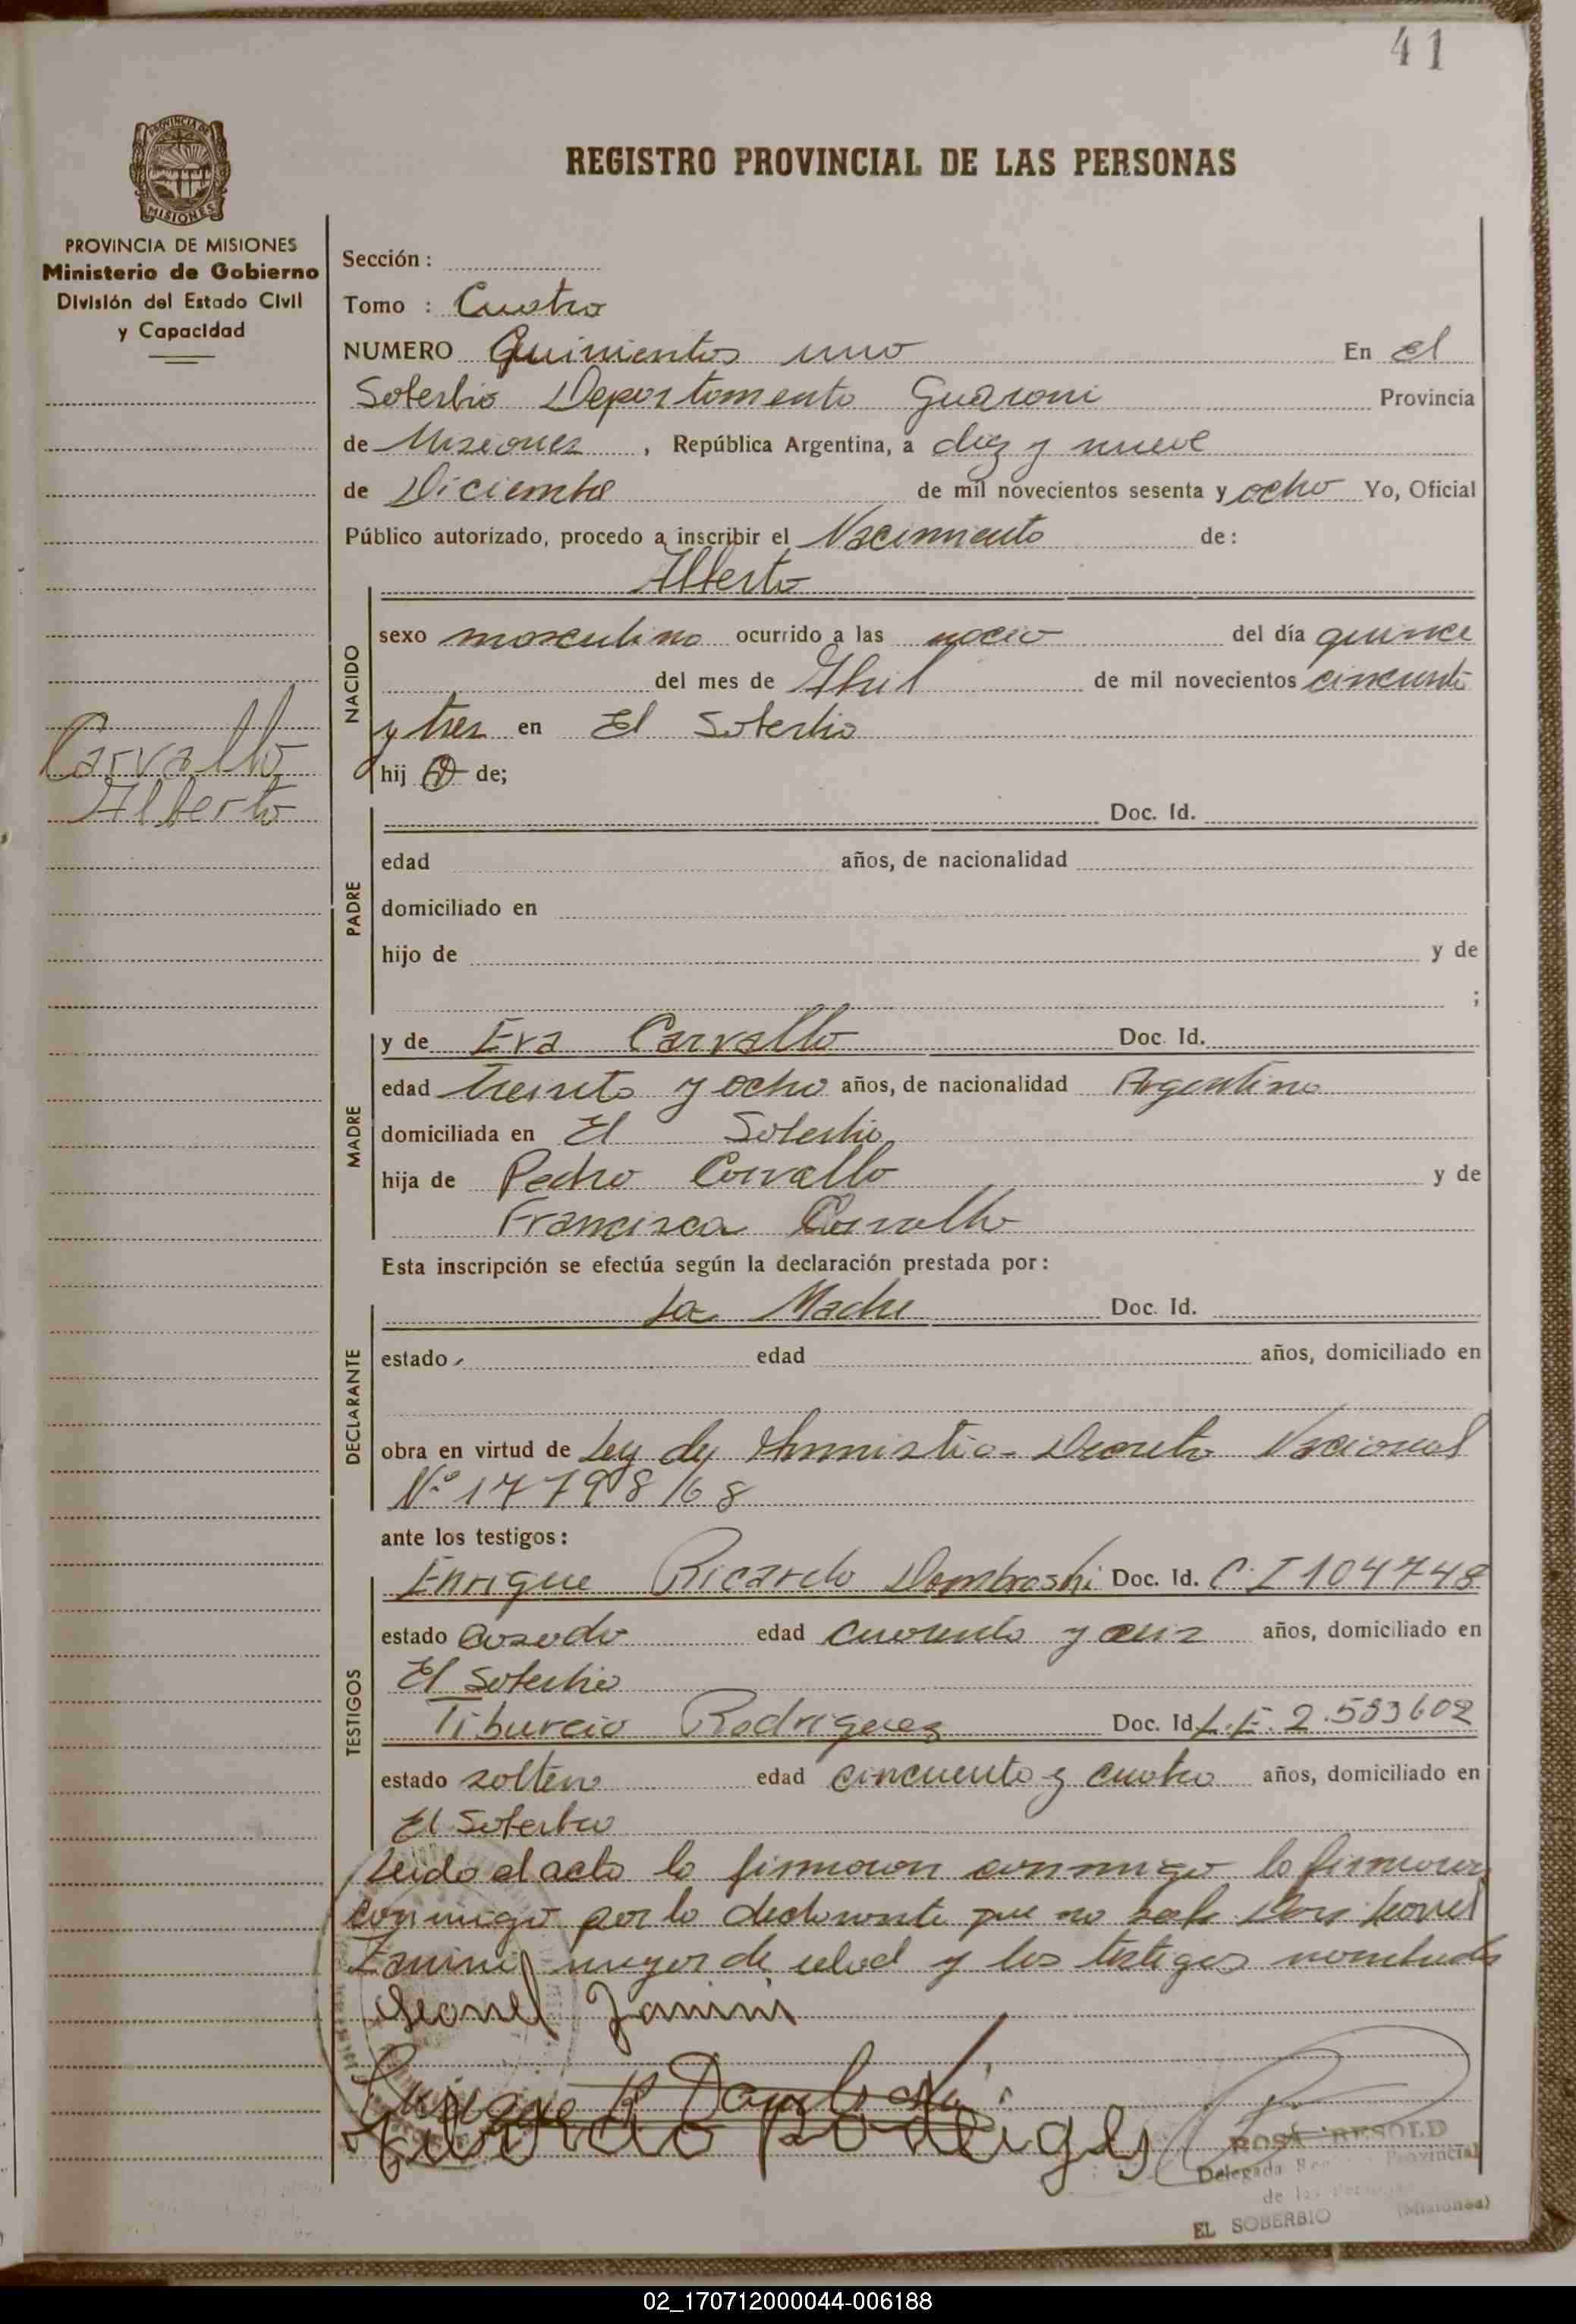 41
PROVINCIA DE
MISIONES
REGISTRO PROVINCIAL DE LAS PERSONAS
PROVINCIA DE MISIONES
Ministerio de Gobierno
División del Estado Civil
y Capacidad
Sección :
Tomo : Cuatro
NUMERO Quinientos uno En el
Soberbio Departamento Guarani Provincia
de Misiones , República Argentina, a diez y nueve
de Diciembre de mil novecientos sesenta y ocho Yo, Oficial
Público autorizado, procedo a inscribir el Nacimiento de:
Alberto
NACIDO
sexo masculino ocurrido a las del día quince
del mes de Abril de mil novecientos cincuenta
y tres en El Soberbio
hij o de;
Carvallo
Alberto
PADRE
Doc. Id.
edad años, de nacionalidad
domiciliado en
hijo de y de
;
MADRE
y de Eva Carvallo Doc. Id.
edad treinta y ocho años, de nacionalidad Argentina
domiciliada en El Soberbio
hija de Pedro Carvallo y de
Francisca Carvallo
Esta inscripción se efectúa según la declaración prestada por:
DECLARANTE
La Madre Doc. Id.
estado edad años, domiciliado en
obra en virtud de Ley de Amnistia - Decreto Nacional
Nº 17798/68
ante los testigos:
TESTIGOS
Enrique Ricardo Dombroski Doc. Id. C.I 104748
estado Casado edad cuarenta y años, domiciliado en
El Soberbio
Tiburcio Rodriguez Doc. Id L.E. 2.533602
estado soltero edad cincuenta y cuatro años, domiciliado en
El Soberbio
Leido el acta la firmaron conmigo la firmaron
conmigo por la declarante que no sabe Don Leonel
Zanini mayor de edad y los testigos nombrados
Leonel Zanini
Enrique R Dombroski
Tiburcio Rodrigues
ROSA RESOLD
Delegada Provincial
de las
EL SOBERBIO (Misiones)
02_170712000044-006188